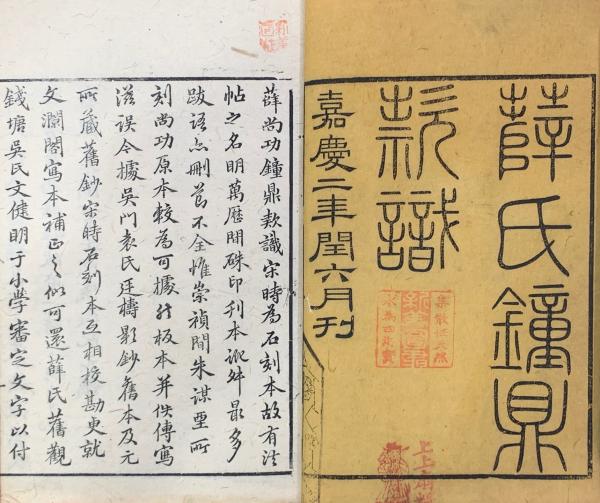 薛氏鐘鼎
款識
嘉慶二年閏六月刊
薛尚功鐘鼎款識宋時為石刻本故有法
帖之名明萬厯間硃印刊本訛舛最多
跋語亦刪節不全惟崇禎間朱謀垔所
刻尚功原本較為可據然板本并佚傳寫
滋誤今據吳門袁氏廷檮影鈔舊本及元
所藏舊鈔宋時石刻本互相校勘更就
文瀾閣寫本補正之似可還薛氏舊觀
錢塘吳氏文健明于小學審定文字以付